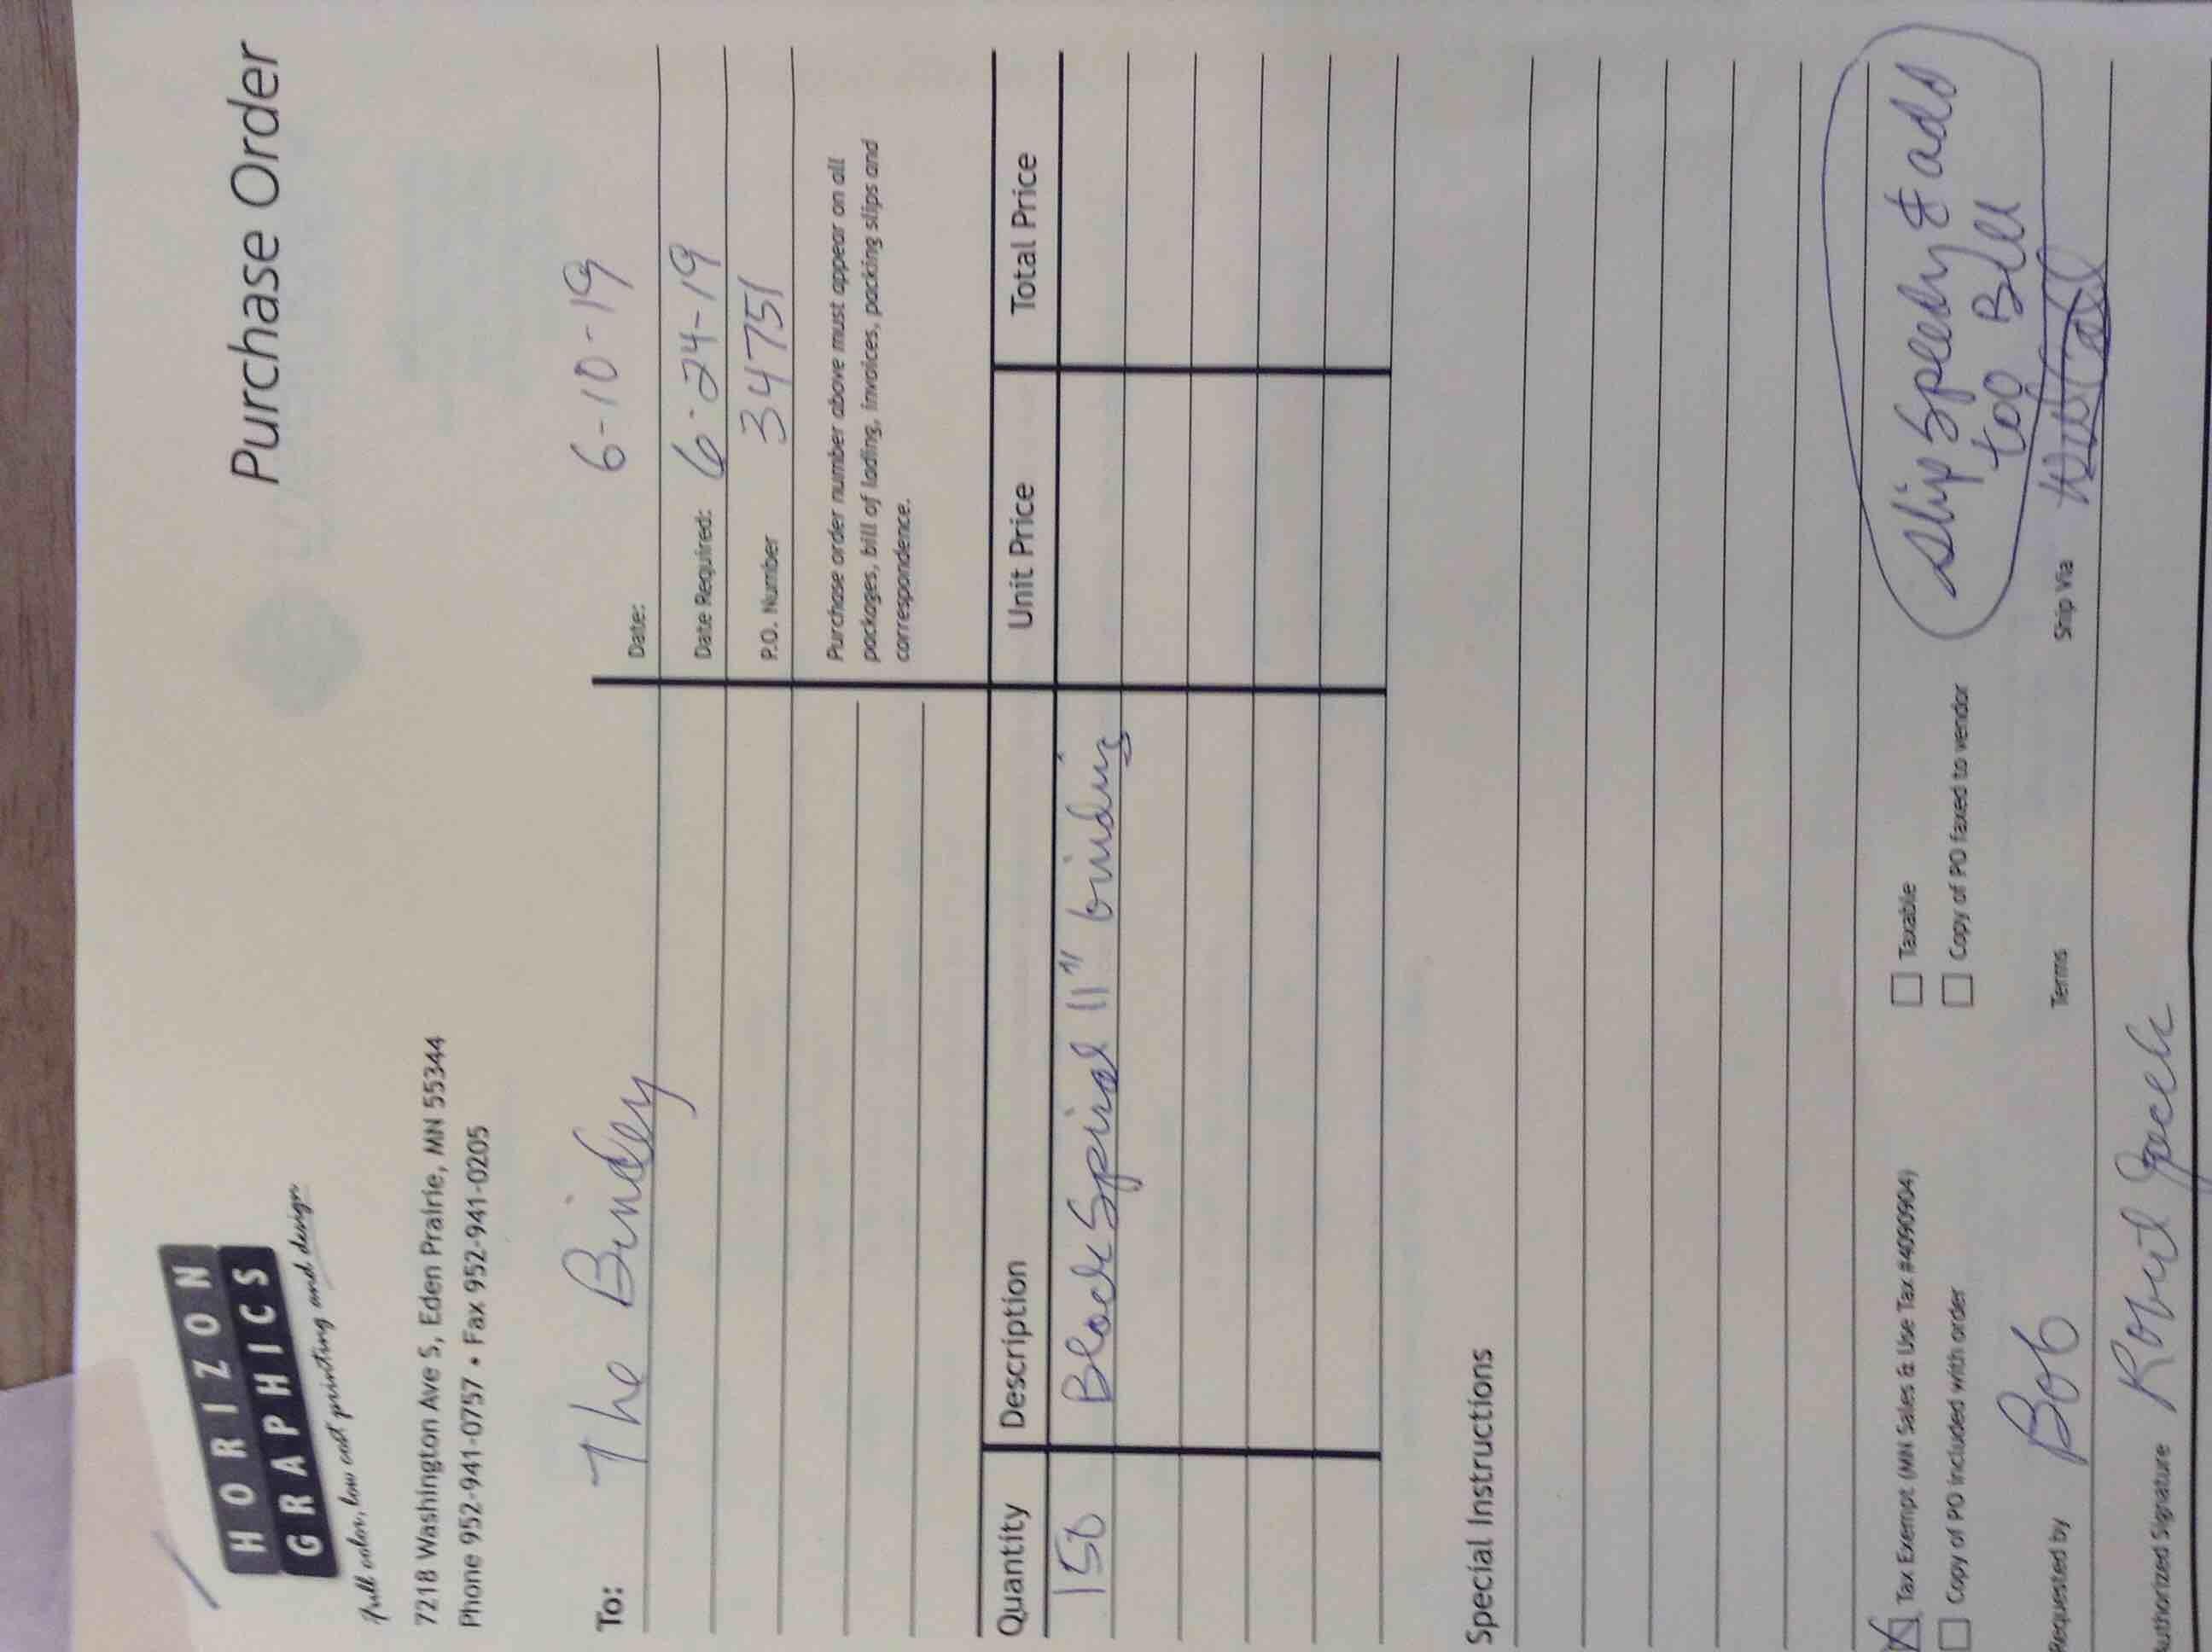 HORIZON
GRAPHICS
full color, low cost printing and design
Purchase Order
7218 Washington Ave S, Eden Prairie, MN 55344
Phone 952-941-0757 • Fax 952-941-0205
To: The Bindery
Date: 6-10-19
Date Required: 6-24-19
P.O. Number 34751
Purchase order number above must appear on all
packages, bill of lading, invoices, packing slips and
correspondence.
Quantity Description Unit Price Total Price
150 Black Spiral 11" binding
Special Instructions
Tax Exempt (MN Sales & Use Tax #4090904) Taxable
Copy of PO included with order Copy of PO faxed to vendor
Ship Speedy & add
to Bill
Requested by Bob Terms Ship Via
Authorized Signature Robert